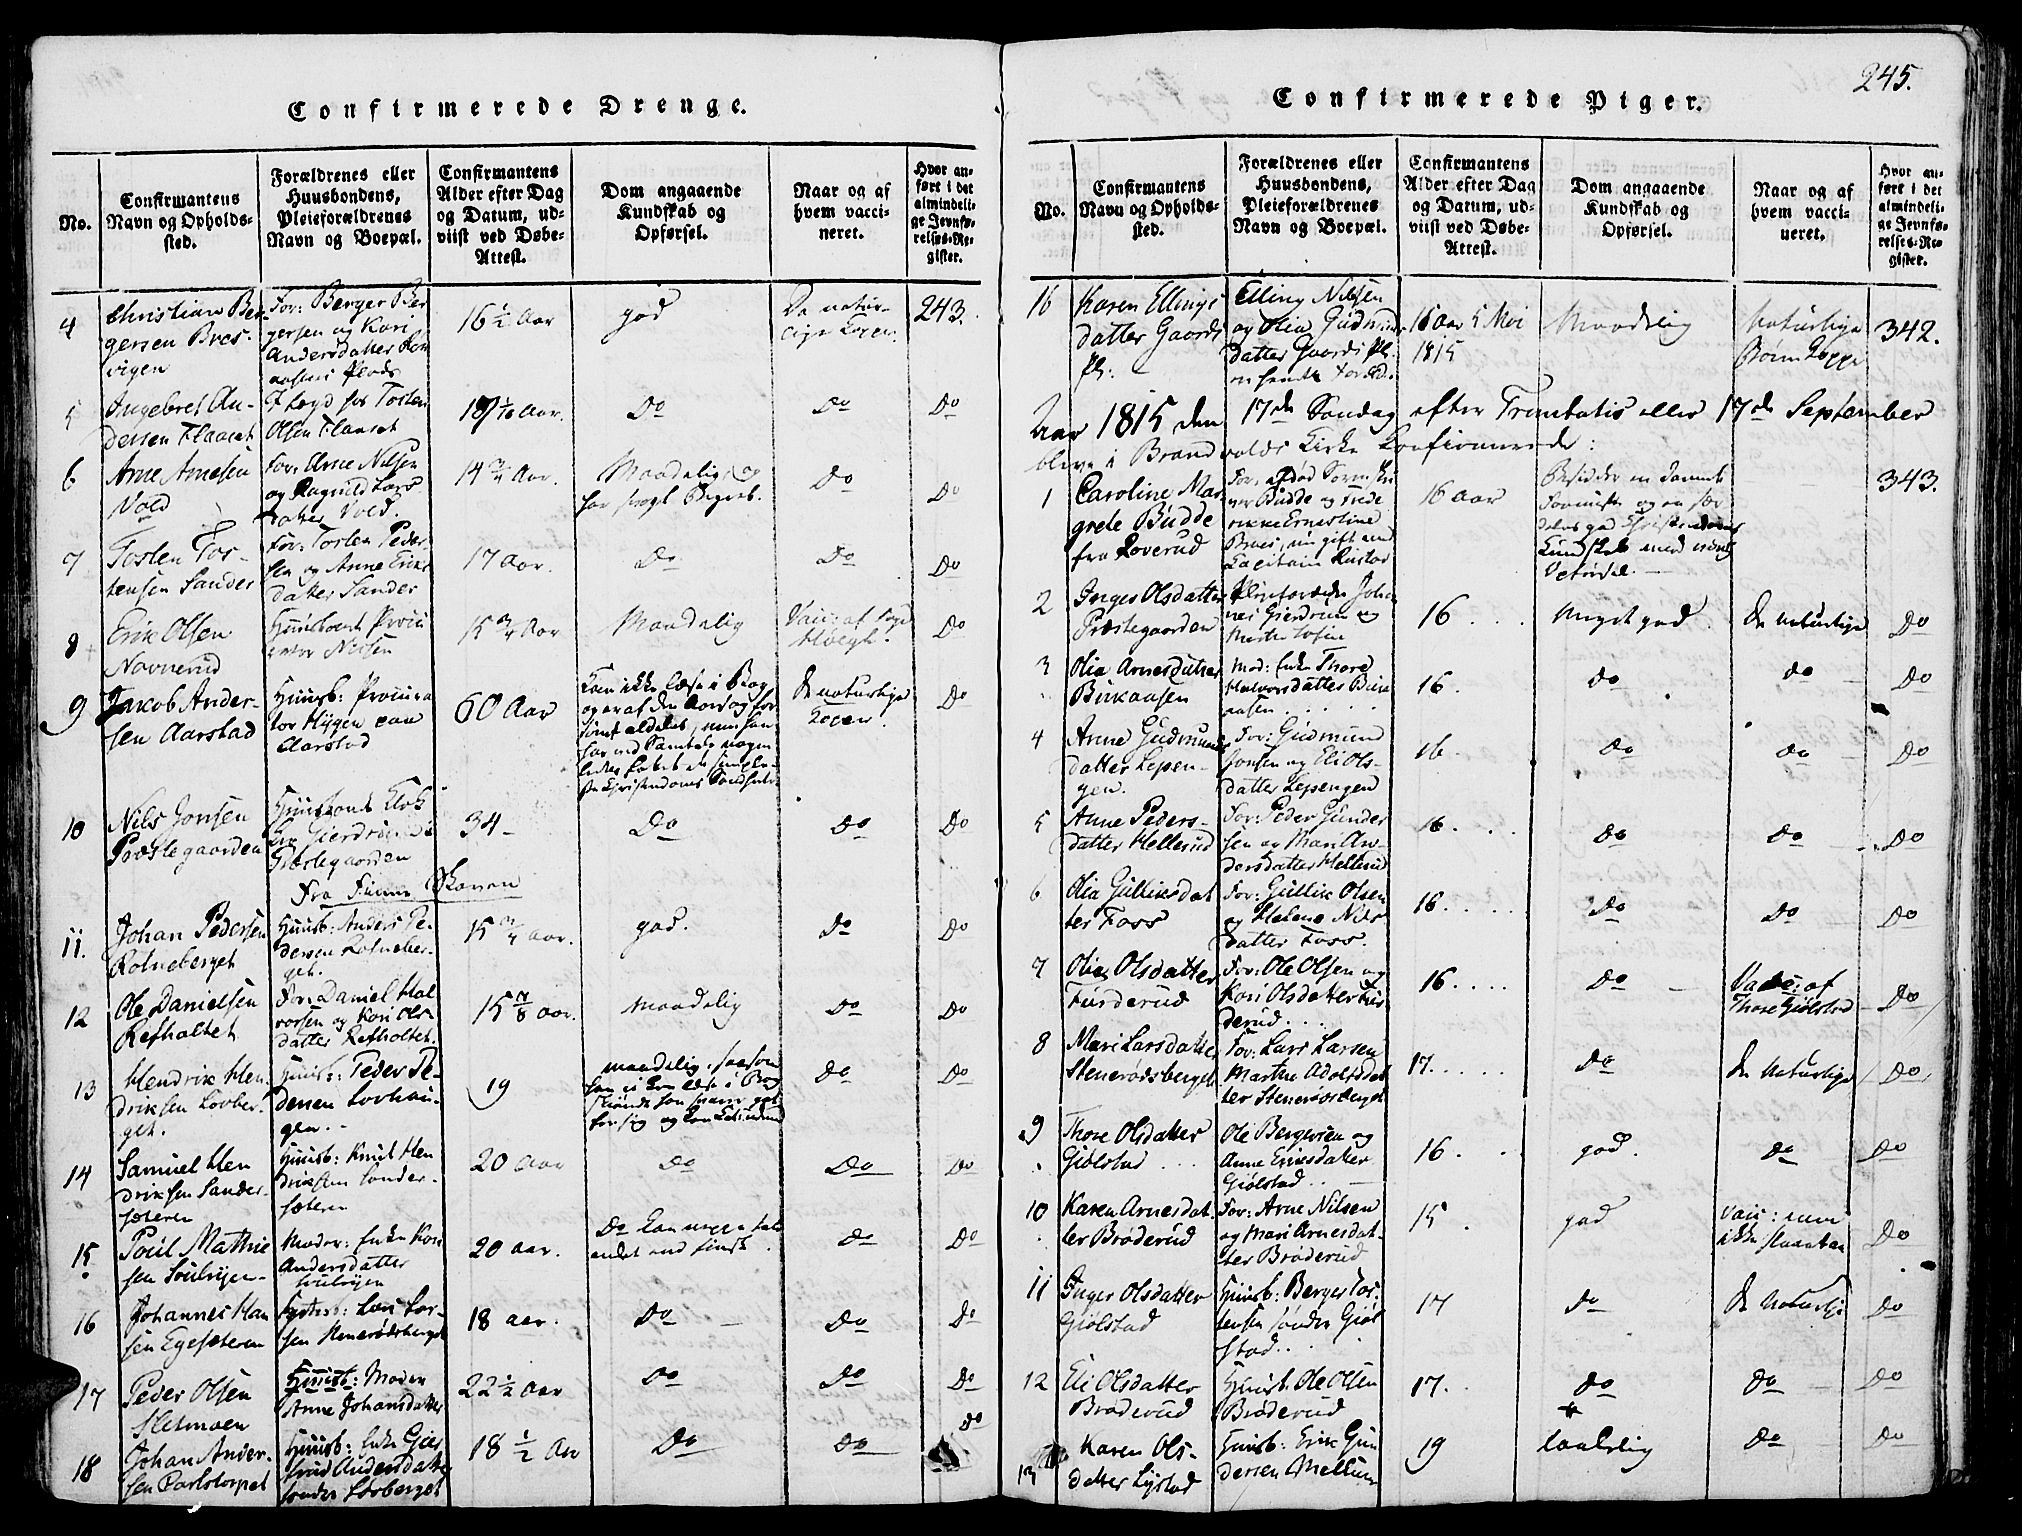 245.
Confirmerede Drenge.
No.
Confirmantens Navn og Opholds-sted.
Forældrenes eller Huusbondens, Pleieforældrenes Navn og Boepæl.
Confirmantens Alder efter Dag og Datum, ud-viist ved Døbe-Attest.
Dom angaaende Kundskab og Opførsel.
Naar og af hvem vacci-neret.
Hvor an-ført i det almindeli-ge Jevnfø-relses-Re-gister.
4
Christian Ber-
gersen Bres-
vigen
For: Berger Ber
gersen og Kari
Andersdatter
16 1/2 Aar
god
De natur-
lige Koper.
243.
5
Ingebret An-
dersen Flaaset
Lægd hos Tosten
Olsen Flaaset
Aar.
Do
Do
Do
6
Arne Arnesen
Vold
For: Arne Nilsen
og Ragnild Lars
datter Vold.
14 3/4 Aar.
Maadelig og
har svagt Begreb.
Do
Do
7
Tosten Tos-
tensen Sander
For: Tosten Peder-
sen og Anne Eriks
datter Sander
17 Aar.
Do
Do
Do
8
Erik Olsen
Navnerud
Huusbond Procu
rator Nilsen
15 3/4 Aar
Maadelig
Vacc: af
Do
9
Jakob Ander-
sen Aarstad
Huusb: Procura
tor Hygen
Aarstad
60 Aar
Kan ikke læse i Bog
De naturlige
Koper.
Do
10
Nils Jonsen
Præstegaarden
Huusbond Klok
ker Gierdrum i
Præstegaarden
34
Do
Do
Do
Fra Finne Skoven
11.
Johan Pedersen
Rotneberget
Huusb: Anders Pe
dersen Rotneber-
get.
15 3/4 Aar.
god.
Do
Do
12
Ole Danielsen
Refholtet
For: Daniel Hal
vorsen og Kari Ols
datter Refholtet.
15 7/8 Aar.
Maadelig
Do
Do
13
Hendrik Hen
driksen Lovber-
get.
Huusb: Peder Pe-
dersen Lovhau-
gen.
19
maadelig, saasom
han ei kan læse i Bog
Do
Do
14
Samuel Hen
driksen Sander-
sæteren
Huusb: Knud Hen
driksen Sander-
sæteren
20 Aar
Do
Do
Do
15
Poul Mathie
sen
Moder: Enke Kari
Andersdatter
20 aar.
Do kan
Do
Do
16
Johannes Han
sen Egesæteren
Lars Lar-
sen Stenerødsberget
18 aar.
Do
Do
Do
17
Peder Olsen
Sletmoen
Huusb: Moder
Anne Johansdatter
22 1/2 Aar
Do
Do
Do
18
Johan Ander-
sen Parlstorpet
Huusb: Enke Gier
trud Andersdatter
Lovberget
18 1/2 Aar
Do
Do
Do
Confirmerede Piger.
No.
Confirmantens Navn og Opholds-sted.
Forældrenes eller Huusbondens, Pleieforældrenes Navn og Boepæl.
Confirmantens Alder efter Dag og Datum, ud-viist ved Døbe-Attest.
Dom angaaende Kundskab og Opførsel.
Naar og af hvem vacci-neret.
Hvor an-ført i det almindeli-ge Jevnfø-relses-Re-gister.
16
Karen Ellings
datter Gaards
Pl:
Elling Nilsen
og Olia Gudmunds
datter Gaards Pl.
16 Aar 5 Mai
1815
Maadelig
Naturlige
Børne Kopper
342.
Aar 1815 den 17de Søndag efter Trinitatis eller 17de September
bleve i Brandvolds Kirke Confirmerede:
1
Caroline Mar
grete Budde
fra Roverud
For: afdød
Budde og Frede
rikke Ernestine
gift med
Capitain Rustad
16 aar
Besidder en
god Christendoms
Kundskab med
343.
2
Inger Olsdatter
Præstegaarden
Pleieforældre Johan
nes Gierdrum og
16
Meget god.
De naturlige
Do
3
Olia Arnesdatter
Birkaasen
Mod: Enke Thore
Halvorsdatter Birk
aasen
16.
Do
Do
Do
4
Anne Gudmunds
datter Lepen-
gen.
For: Gudmund
Jonsen og Eli Ols-
datter Lepengen
16.
Do
Do
Do
5
Anne Peders-
datter Hellerud
For: Peder Gunder
sen og Mari An-
dersdatter Hellerud
16.
Do
Do
Do
6
Olia Gulliksdat
ter Foss
For: Gullik Olsen
og Helene Nils
datter Foss.
16.
Do
Do
Do
7
Olia Olsdatter
Furderud
For: Ole Olsen og
Kari Olsdatter Fur
derud.
16.
Do
Vacc: af
Thore Giølstad
Do
8
Mari Larsdatter
Stenerødsberget
For: Lars Larsen
Marthe Adolfsdat
ter Stenerødsberget
17.
Do
De naturlige
Do
9
Thore Olsdatter
Giølstad
Ole Bergersen og
Anne Eriksdatter
Giølstad
16
god.
Do
Do
10
Karen Arnesdat
ter Brøderud
For: Arne Nilsen
og Mari Arnesdat-
ter Brøderud
15
god
Vacc: men
ikke slaaet an
Do
11
Inger Olsdatter
Giølstad
Huusb: Berger Tos
tensen søndre Giøl
stad.
17
Do
De naturlige
Do
12
Eli Olsdatter
Brøderud
Huusb. Ole Olsen
Brøderud
17.
Do
Do
Do
13
Karen Ols-
datter Lystad
Huusb: Erik Gun
dersen Mellum
19
taalelig
Do
Do